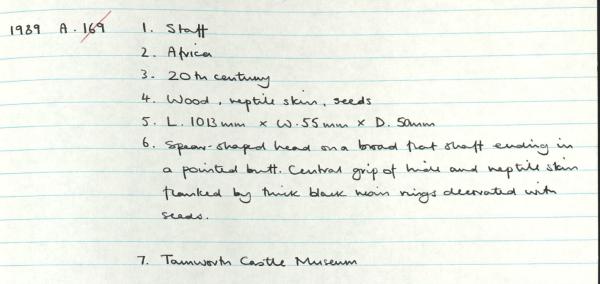 1989 A.169 1. Staff
2. Africa
3. 20th century
4. Wood, reptile skin, seeds
5. L. 1013mm x W.55mm x D. 50mm
6. Spear-shaped head on a broad flat shaft ending in
a pointed butt. Central grip of hide and reptile skin
flanked by thick black resin rings decorated with
seeds.
7. Tamworth Castle Museum